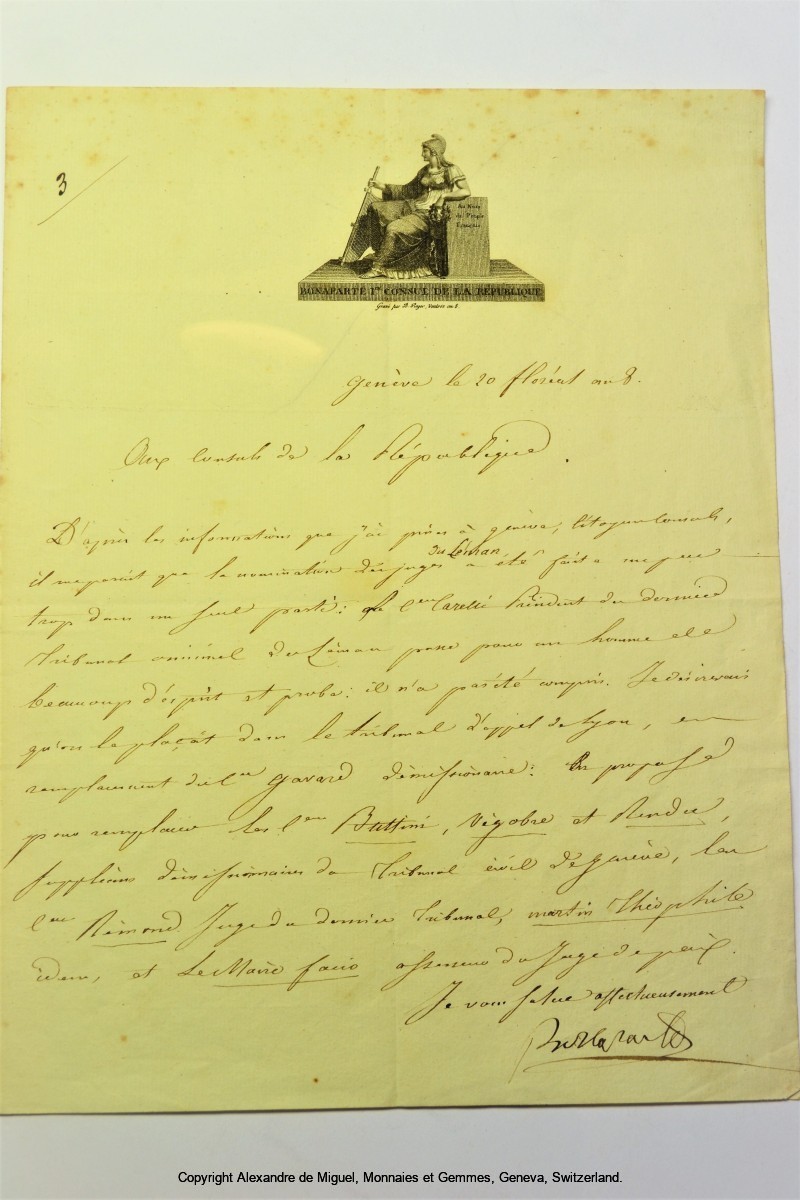 3
Au Nom
du Peuple
Français
BONAPARTE 1er CONSUL DE LA REPUBLIQUE
Gravé par B. Roger, Ventôse an 8.
Genève le 20 floréal an 8.
Aux Consuls de la République.
D'après les informations que j'ai prises à genève, Citoyens Consuls,
du Léman
il me parait que la nomination des juges a été faite un peu
trop dans un seul parti: le Cen Président du dernier
Tribunal criminel du Léman passe pour un homme de
beaucoup d'esprit et probe: il n'a pas été compris. Je désirerais
qu'on le plaçât dans le tribunal d'appel de Lyon, en
remplacement du Cen Gavard démissionaire: On propose
pour remplacer les Cens Buttini, Végobre et Rendu,
Suppléans démissionaires du Tribunal civil de genève, les
Cens Rémond Juge du dernier Tribunal, martin Théophile
idem, et Le Maire facio assesseur du Juge de paix.
Je vous salue affectueusement
Bonaparte
Copyright Alexandre de Miguel, Monnaies et Gemmes, Geneva, Switzerland.